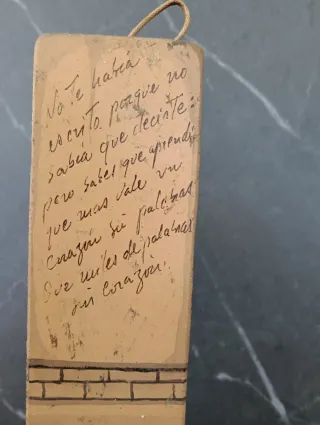 No te había
escrito porque no
sabía que decirte:
pero sabes que aprendí
que mas vale un
corazón sin palabras
que miles de palabras
sin corazón.